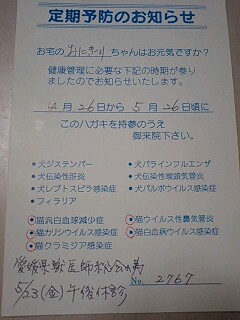 定期予防のお知らせ
お宅の おにぎり ちゃんはお元気ですか?
健康管理に必要な下記の時期が参り
ましたのでお知らせいたします。
4月26日から5月26日頃に
このハガキを持参のうえ
御来院下さい。
・犬ジステンパー ・犬パラインフルエンザ
・犬伝染性肝炎 ・犬伝染性喉頭気管炎
・犬レプトスピラ感染症 ・犬パルボウイルス感染症
・フィラリア
・猫汎白血球減少症 ・猫ウイルス性鼻気管炎
・猫カリシウイルス感染症 ・猫白血病ウイルス感染症
・猫クラミジア感染症
愛媛県獣医師総会の為
5/23(金)午後休診 No. 2767